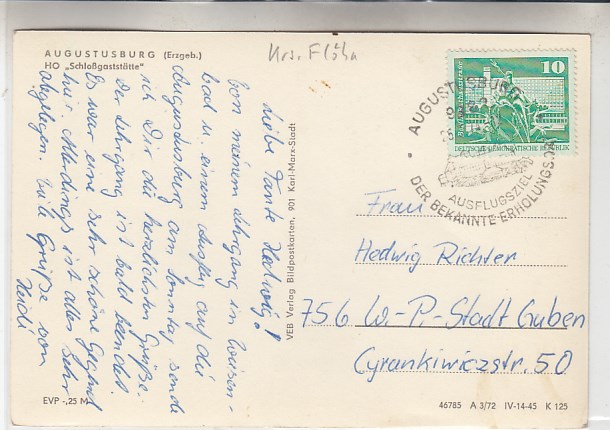 AUGUSTUSBURG (Erzgeb.)
HO „Schloßgaststätte"
Krs. Flöha
Liebe Tante Hedwig!
Von meinem Lehrgang in Wiesen-
bad u. einem Ausflug auf die
Augustusburg am Sonntag sende
ich Dir die herzlichsten Grüße.
Der Lehrgang ist bald beendet.
Es war eine sehr schöne Gegend
hier. Allerdings ist alles sehr
abgelegen. Viele Grüße von
Heidi
EVP -,25 M
VEB Verlag Bildpostkarten, 901 Karl-Marx-Stadt
10
DEUTSCHE DEMOKRATISCHE REPUBLIK
AUGUSTUSBURG
DER BEKANNTE ERHOLUNGS
AUSFLUGSZIEL
Frau
Hedwig Richter
756 W.-P.-Stadt Guben
Cyrankiwiczstr. 50
46785 A 3/72 IV-14-45 K 125